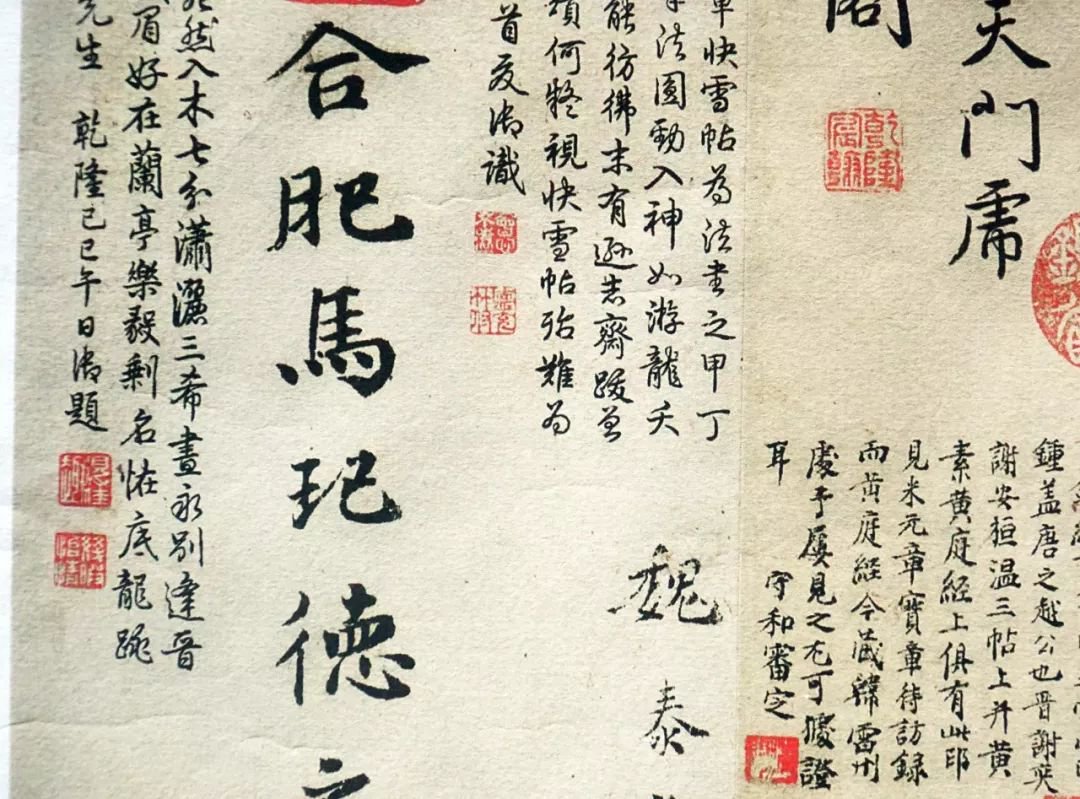 天門虎
閣
乾隆宸翰
鍾蓋唐之越公也晉謝奕
謝安桓温三帖上并黄
素黄庭經上俱有此印
見米元章寶章待訪録
而黄庭經今藏韓宗伯
處予屢見之尤可據證
耳 守和審定
快雪帖為法書之甲丁
法圓勁入神如游龍夭
能彷彿未有遜志齋跋
頭何凝視快雪帖殆難為
首夏御識
魏泰
合肥馬玘德
然入木七分瀟灑三希晝永別達晉
眉好在蘭亭樂毅剩名恠底龍跳
先生 乾隆己巳午日御題